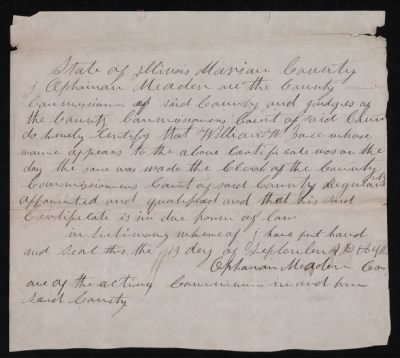 State of Illinois Marion County
I Ophaman Meaden one the County
Commissioners of said County and judges of
the County Commissioners Court of said County
do hereby Certify that William W Pace whose
name appears to the above Certificate was on the
day the same was made the Clerk of the County
Commissioners Court of said County Regularly
appointed and qualified and that his said
Certificate is in due form of law
in testimony whereof I have put hand
and seal this the 13 day of September AD
Ophaman Meaden
one of the acting Commissioners in and for
said County